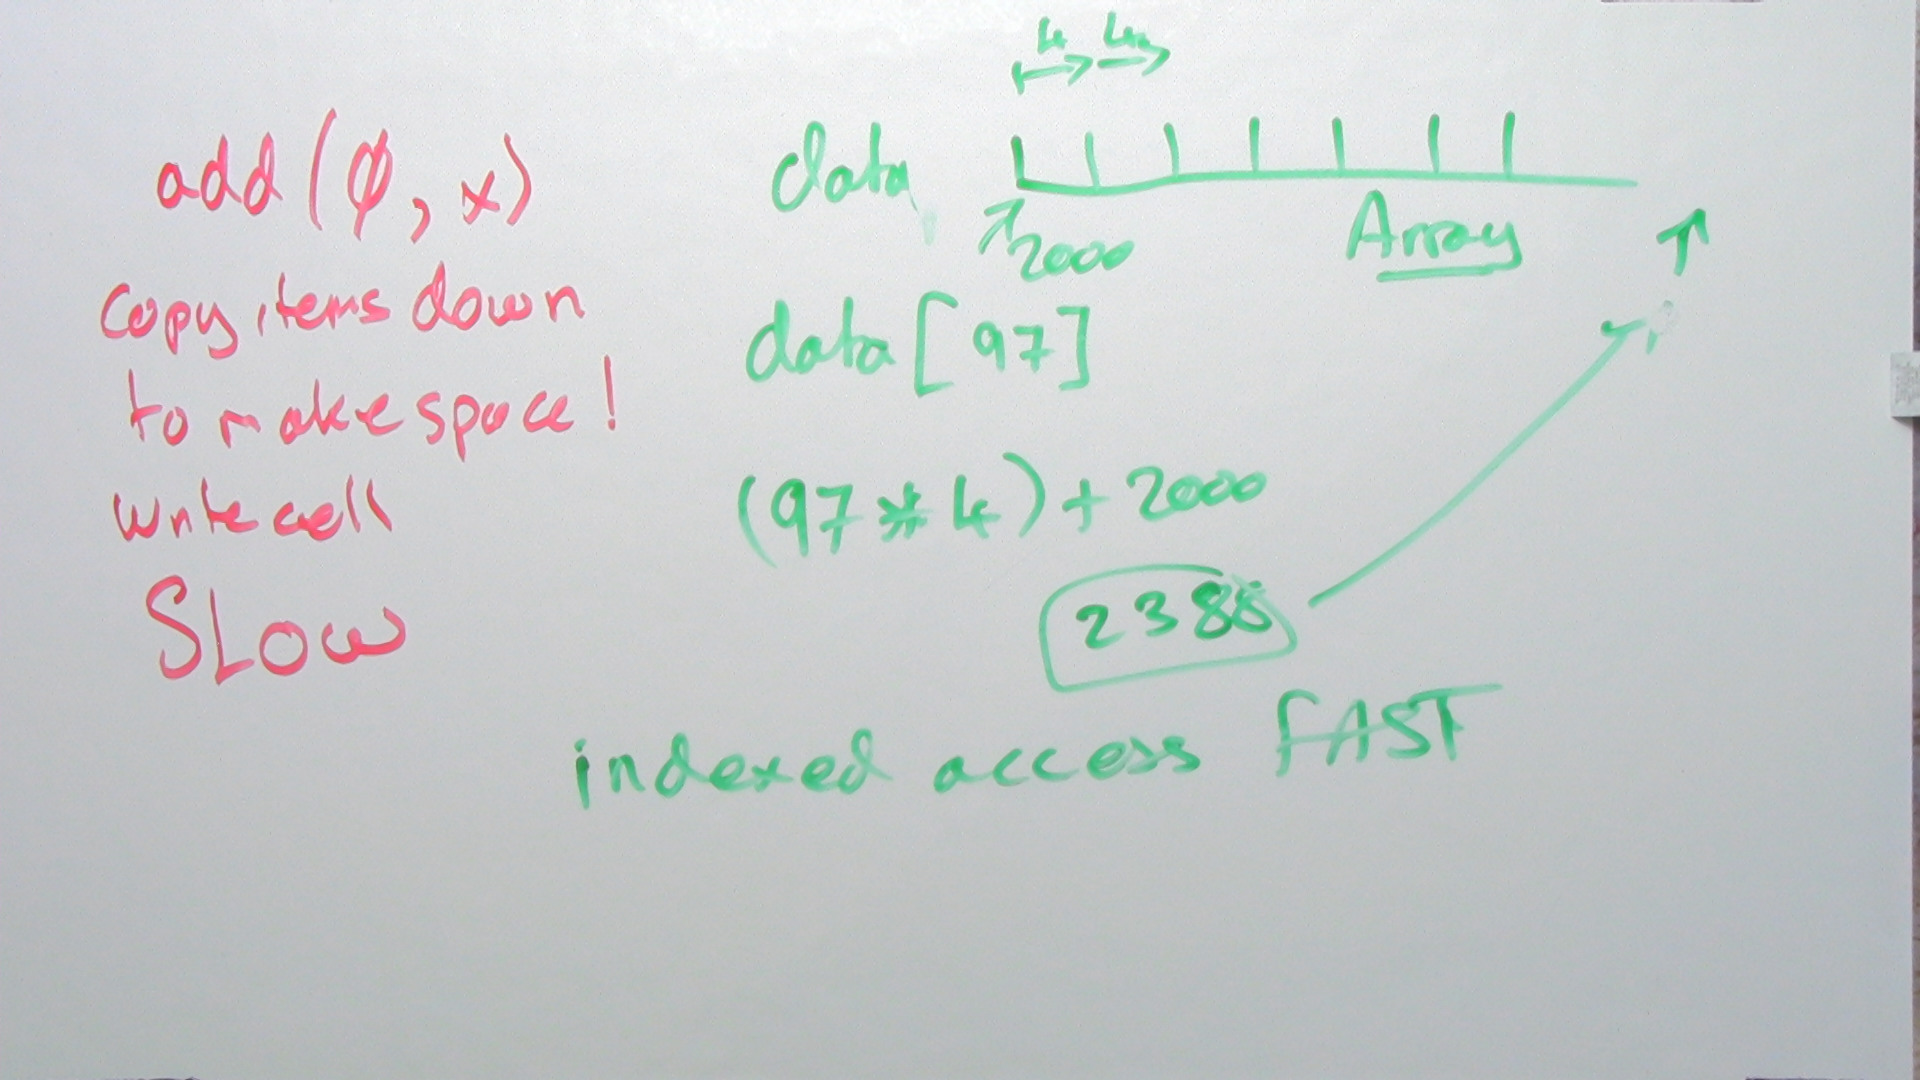 add(0, x)
copy items down
to make space!
write cell
SLOW
4 4
data
2000
Array
data[97]
(97*4)+2000
2388
indexed access FAST